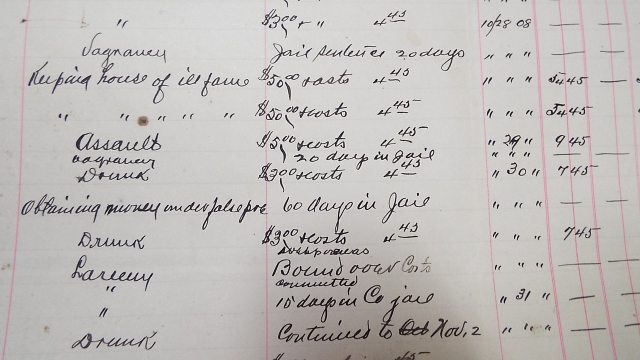 " $3.00 + " 4.45 10/28 08 — —
Vagrancy Jail sentence 20 days " " " — —
Keeping house of ill fame $50.00 + costs 4.45 " " " 54.45
" " " " " $50.00 + costs 4.45 " " " 54.45
Assault $5.00 + costs 4.45 " 29 " 9.45
vagrancy 20 day in jail " " " — —
Drunk $3.00 + costs 4.45 " 30 " 7.45
Obtaining money under false pre 60 days in Jail " " " — —
Drunk $3.00 + costs 4.45 " " " 7.45
Larceny Bound over Costs " " " —
committed
" 15 days in Co jail " 31 " — —
"
Drunk Continued to Oct Nov. 2 " " " — —
45